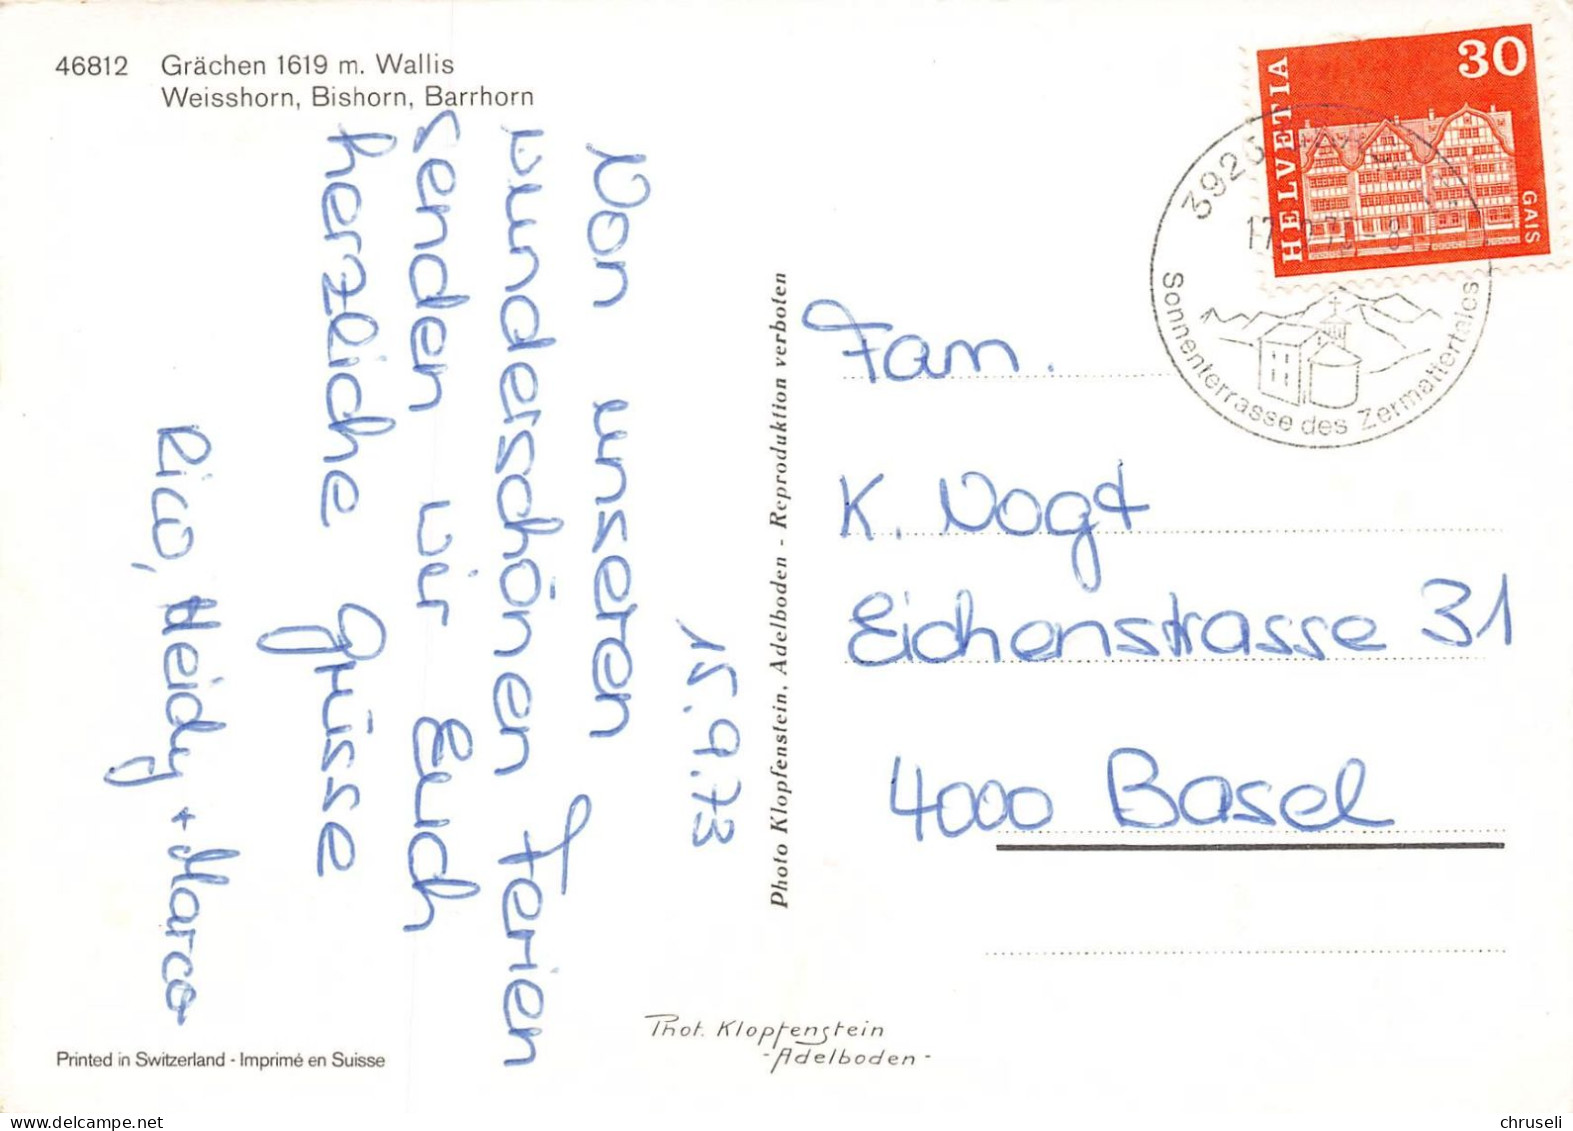 46812 Grächen 1619 m. Wallis
Weisshorn, Bishorn, Barrhorn
15.9.73
Von unseren
wunderschönen Ferien
senden wir Euch
herzliche Grüsse
Rico, Heidy + Marco
Printed in Switzerland - Imprimé en Suisse
Photo Klopfenstein, Adelboden - Reproduktion verboten
Phot. Klopfenstein
- Adelboden -
HELVETIA
30
GAIS
Sonnenterrasse des Zermattertales
Fam.
K. Vogt
Eichenstrasse 31
4000 Basel
chruseli